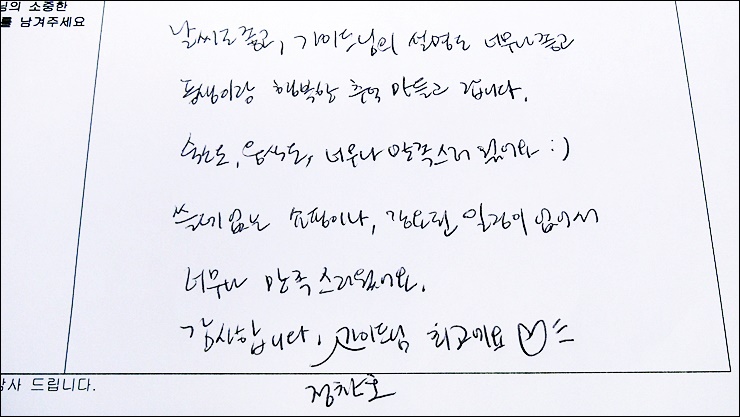 님의 소중한
를 남겨주세요
날씨도 좋고, 가이드님의 설명도 너무나 좋고
동생이랑 행복한 추억 만들고 갑니다.
숙소도, 음식도, 너무나 만족스러웠어요 :)
쓸데없는 쇼핑이나, 강요된 일정이 없어서
너무나 만족스러웠어요.
감사합니다. 가이드님 최고예요 ♡
정찬호
감사 드립니다.